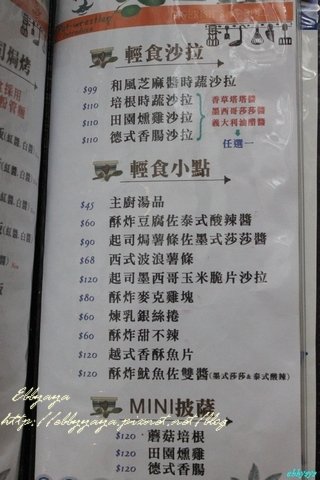 輕食沙拉
$99 和風芝麻醬時蔬沙拉
$110 培根時蔬沙拉
$110 田園燻雞沙拉
$110 德式香腸沙拉
香草塔塔醬
墨西哥莎莎醬
義大利油醋醬
任選一
輕食小點
$45 主廚湯品
$60 酥炸豆腐佐泰式酸辣醬
$90 起司焗薯條佐墨式莎莎醬
$68 西式波浪薯條
$120 起司墨西哥玉米脆片沙拉
$80 酥炸麥克雞塊
$60 煉乳銀絲捲
$60 酥炸甜不辣
$120 越式香酥魚片
$120 酥炸魷魚佐雙醬(墨式莎莎&泰式酸辣)
MINI披薩
$120 蘑菇培根
$120 田園燻雞
$120 德式香腸
Ebbyaya
http://ebbyyaya.pixnet.net/blog
ebbyaya